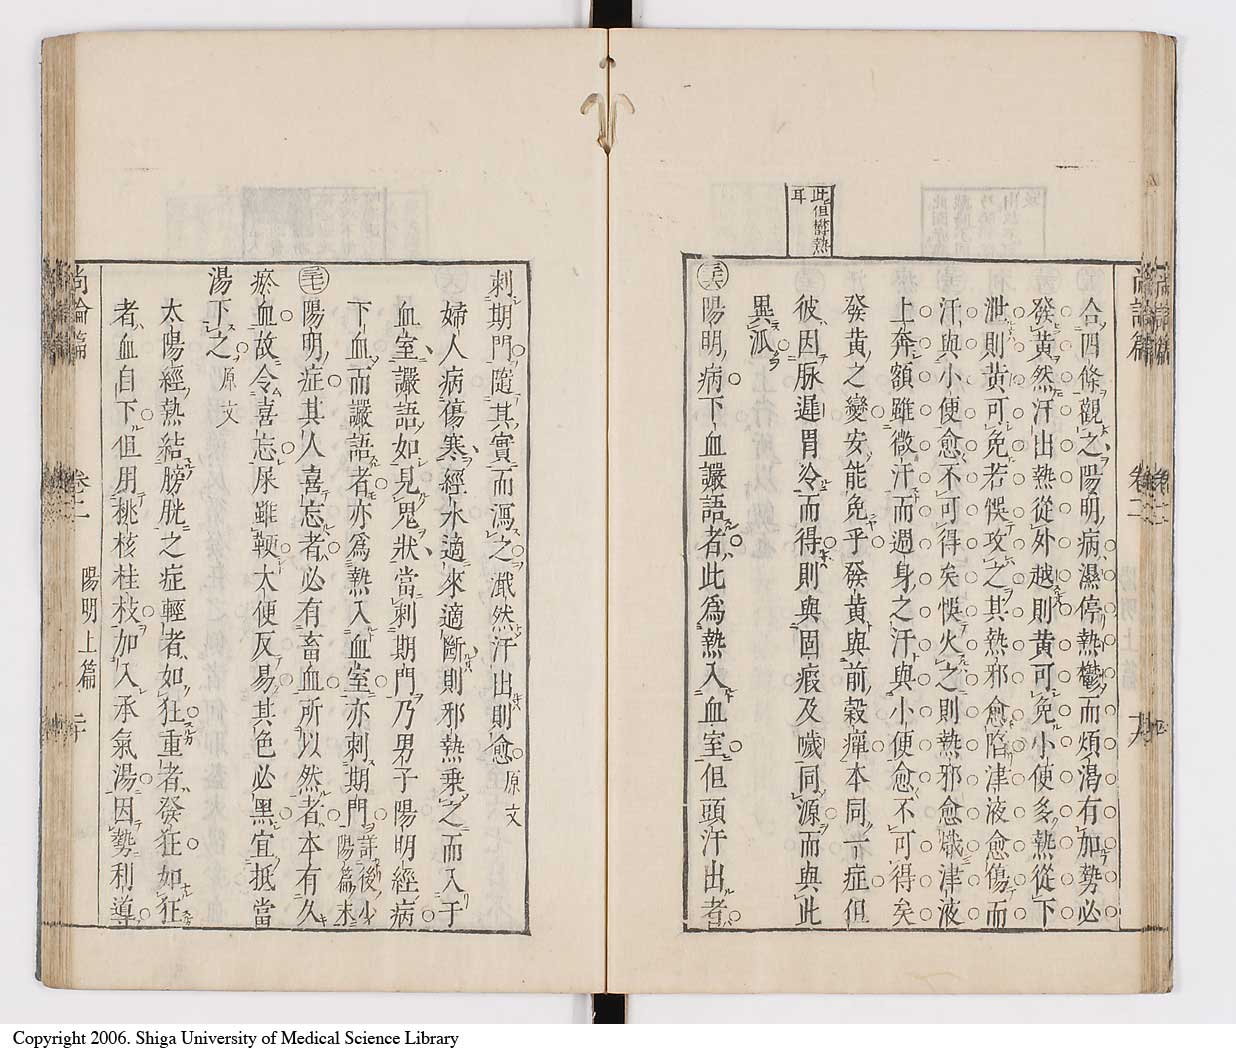 此但欝熱
耳
合四條觀之陽明病濕停熱鬱而煩渴有加勢必
發黃然汗出熱從外越則黃可免小便多熱從下
泄則黃可免若悞攻之其熱邪愈陷津液愈傷而
汗與小便愈不可得矣悞火之則熱邪愈熾津液
上奔額雖微汗而週身之汗與小便愈不可得矣
發黃之變安能免乎發黃與前穀癉本同一症但
彼因脉遲胃冷而得則與固瘕及噦同源而與此
異派
三六
陽明病下血讝語者此爲熱入血室但頭汗出者
尚論篇 卷二 陽明上篇 十九
刺期門隨其實而瀉之濈然汗出則愈 原文
婦人病傷寒經水適來適斷則邪熱乗之而入于
血室讝語如見鬼狀當刺期門乃男子陽明經病
下血而讝語者亦爲熱入血室亦刺期門 詳後少陽篇末
三七
陽明症其人喜忘者必有畜血所以然者本有久
瘀血故令喜忘屎雖鞕大便反易其色必黑宜抵當
湯下之 原文
太陽經熱結膀胱之症輕者如狂重者發狂如狂
者血自下但用桃核桂枝加入承氣湯因勢利導
尚論篇 卷二 陽明上篇 二十
Copyright 2006. Shiga University of Medical Science Library